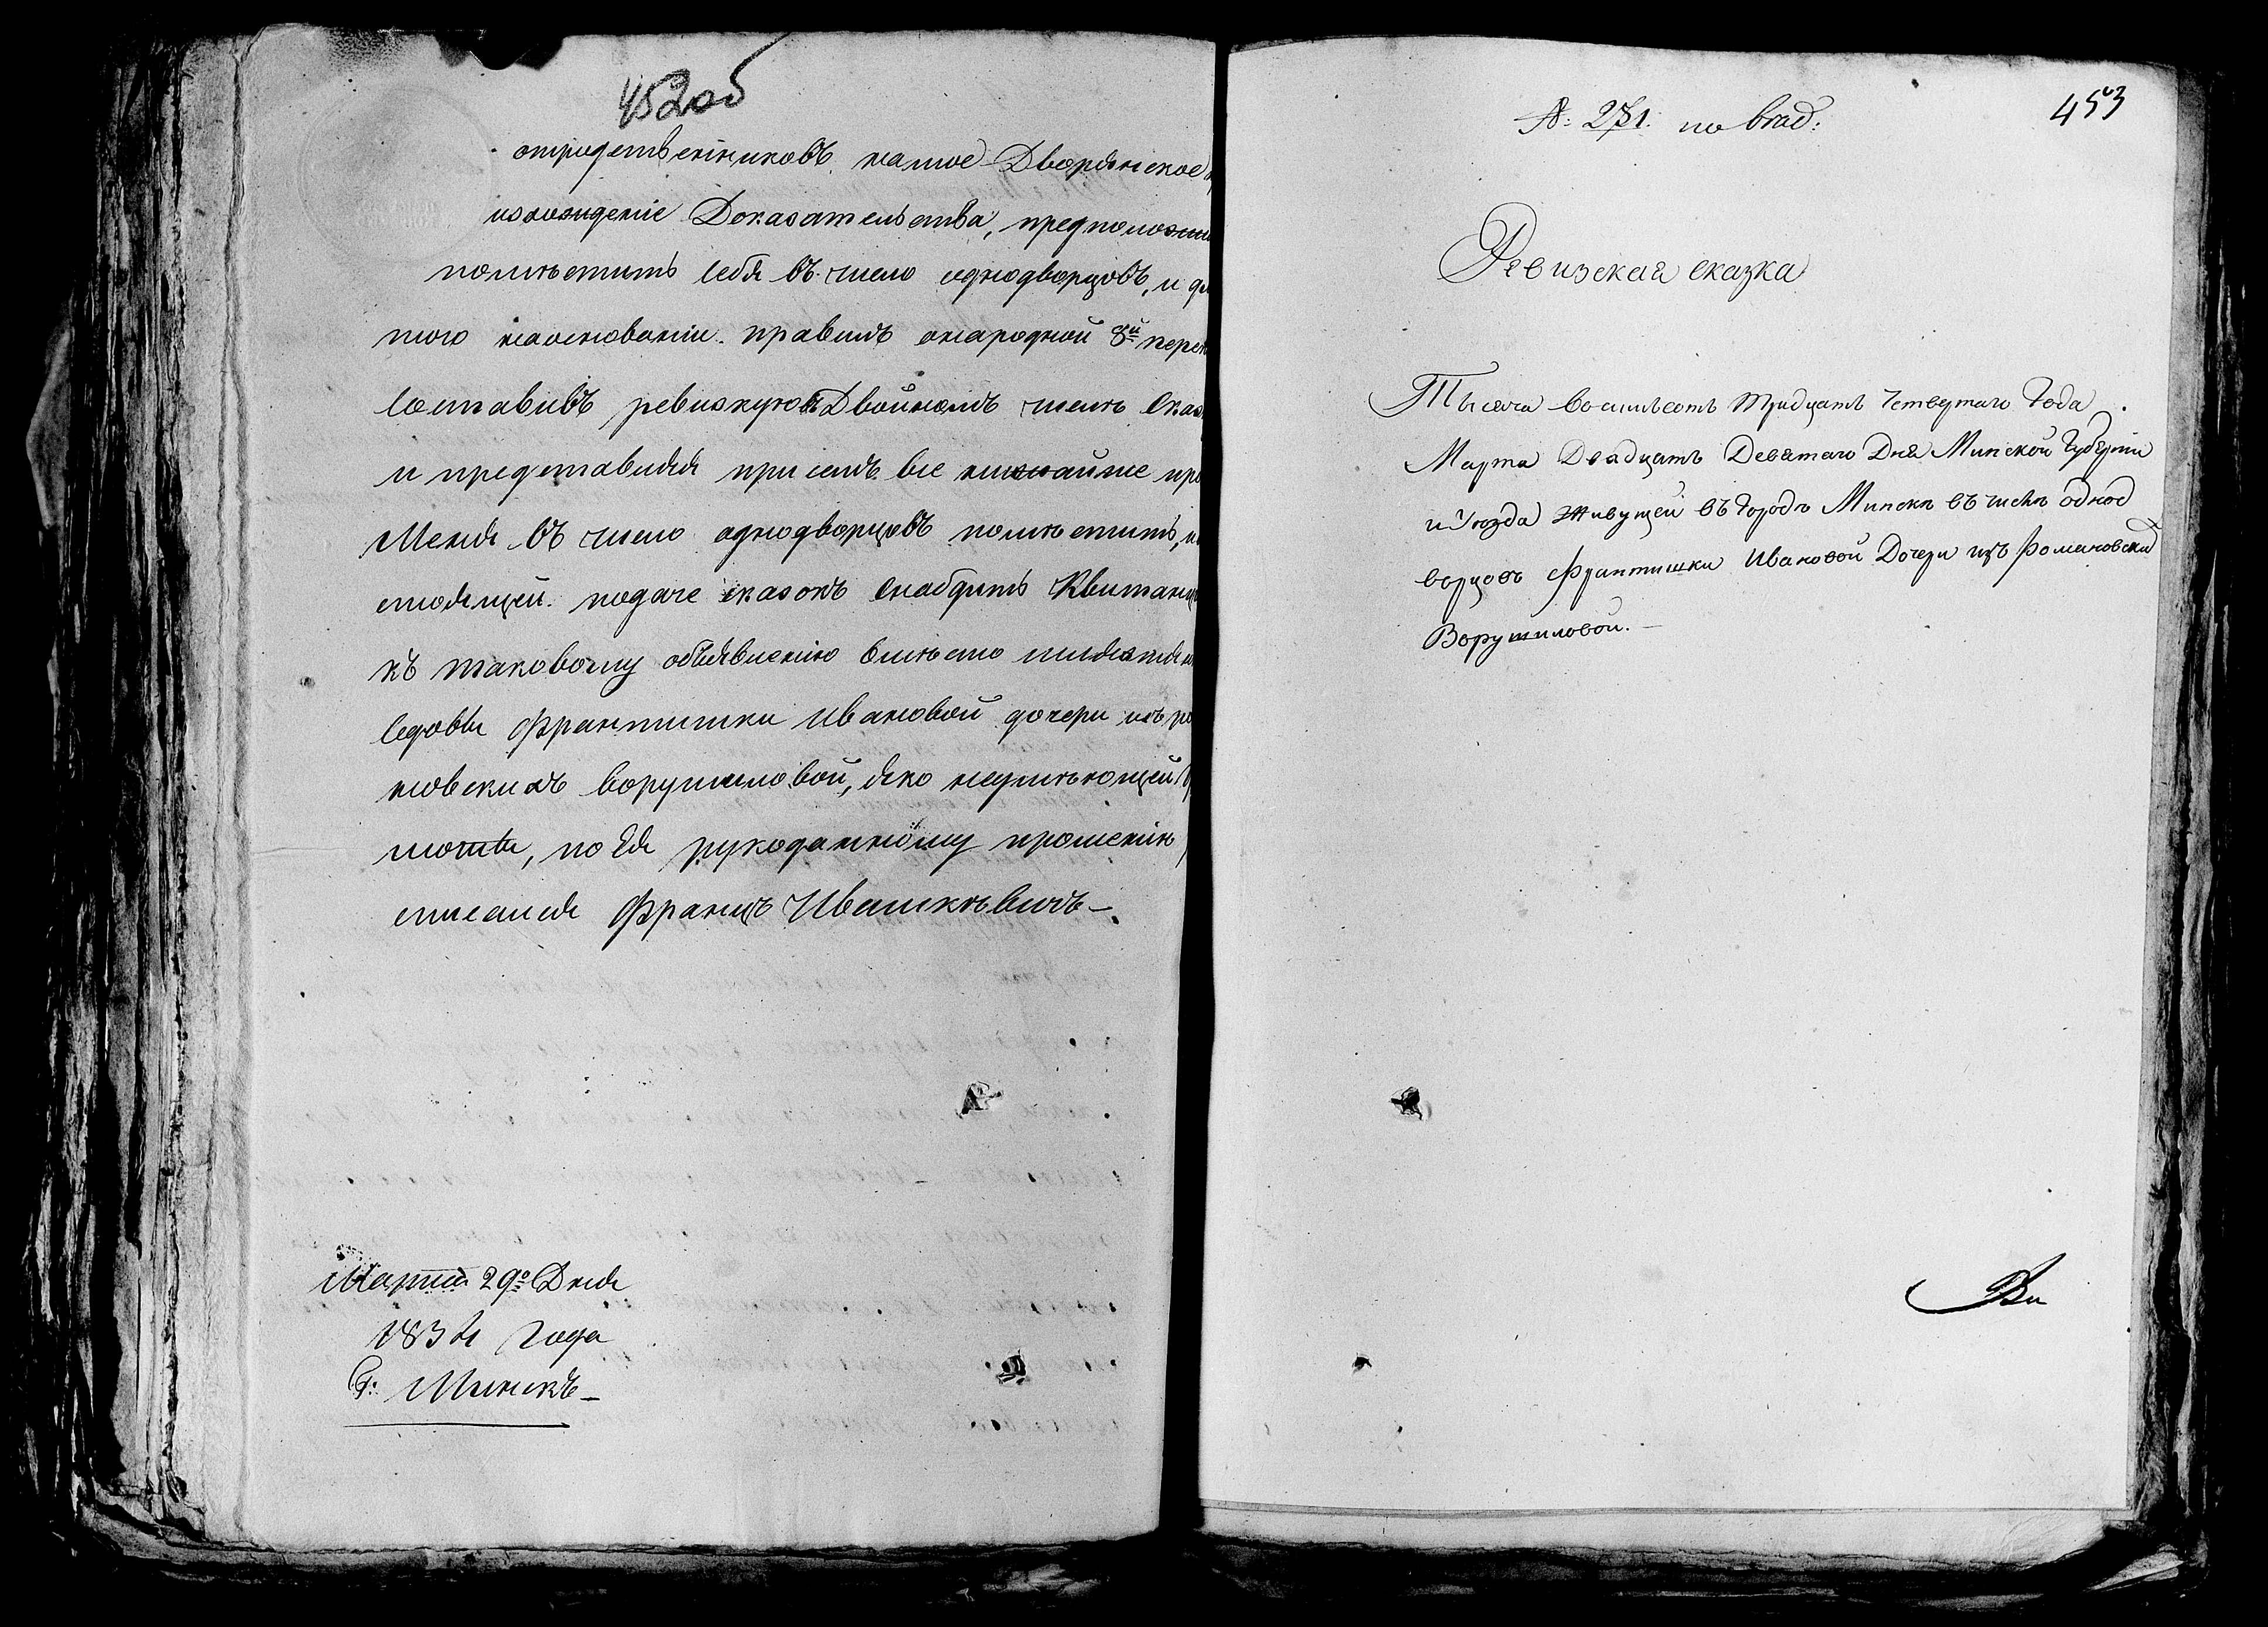 452об
отродственниковъ натое Дворянское
изхождение Доказательства, предположи
помѣстить себя въ число однодворцовъ, и дл
того наосновании правилъ онародной 8й пере
составивъ ревизкую въ Двойномъ числѣ сказ
и представляя присемъ. все нижайше про
Меня въ число однодворцовъ помѣстить, и
стоящей подаче сказокъ снабдить Квитанц
къ таковому объявлению вмѣсто
седовы Франтишки Ивановой дочери изъ ро
мовскихъ Ворушиловой, яко неумѣющей гр
моты, по Ея рукоданному прошению
списался Францъ Ивашкѣвичъ
Марта 29го Дня
1834 года
Г: Минскъ
453
№: 271. по влад:
Ревизская сказка
Тысяча восимьсотъ тридцать Четвертаго Года
Марта Двадцать Девятаго Дня Минской Губернии
и Уезда живущей въ Городѣ Минскѣ въ числѣ однод
ворцовъ Франтишки Ивановой Дочери изъ Романовских
Ворушиловой.